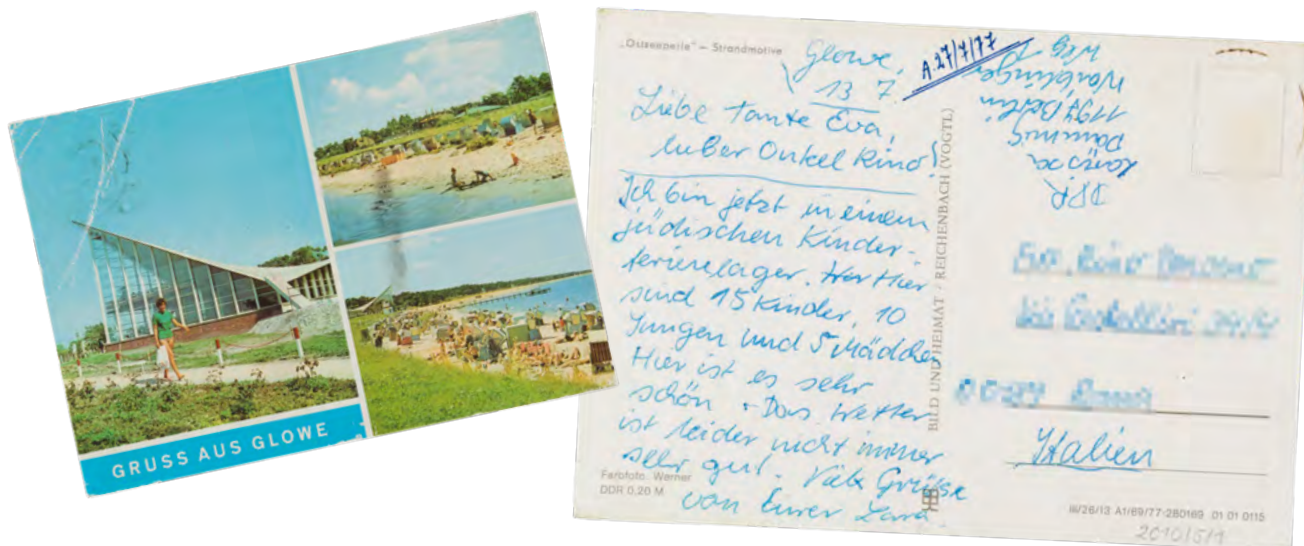 GRUSS AUS GLOWE
„Ostseeperle" – Strandmotive
Glowe,
13 7
A. 27/7/77
Liebe Tante Eva,
lieber Onkel Kino!
Ich bin jetzt in einem
jüdischen Kinder-
ferienlager. Hier
sind 15 Kinder, 10
Jungen und 5 Mädchen
Hier ist es sehr
schön. Das Wetter
ist leider nicht immer
sehr gut. Viele Grüsse
von Eurer Lara.
Farbfoto: Werner
DDR 0,20 M
BILD UND HEIMAT / REICHENBACH (VOGTL)
DDR
Dammus
1197 Berlin
Weg
Italien
III/26/13 A1/69/77-280169 01 01 0115
2010/5/1